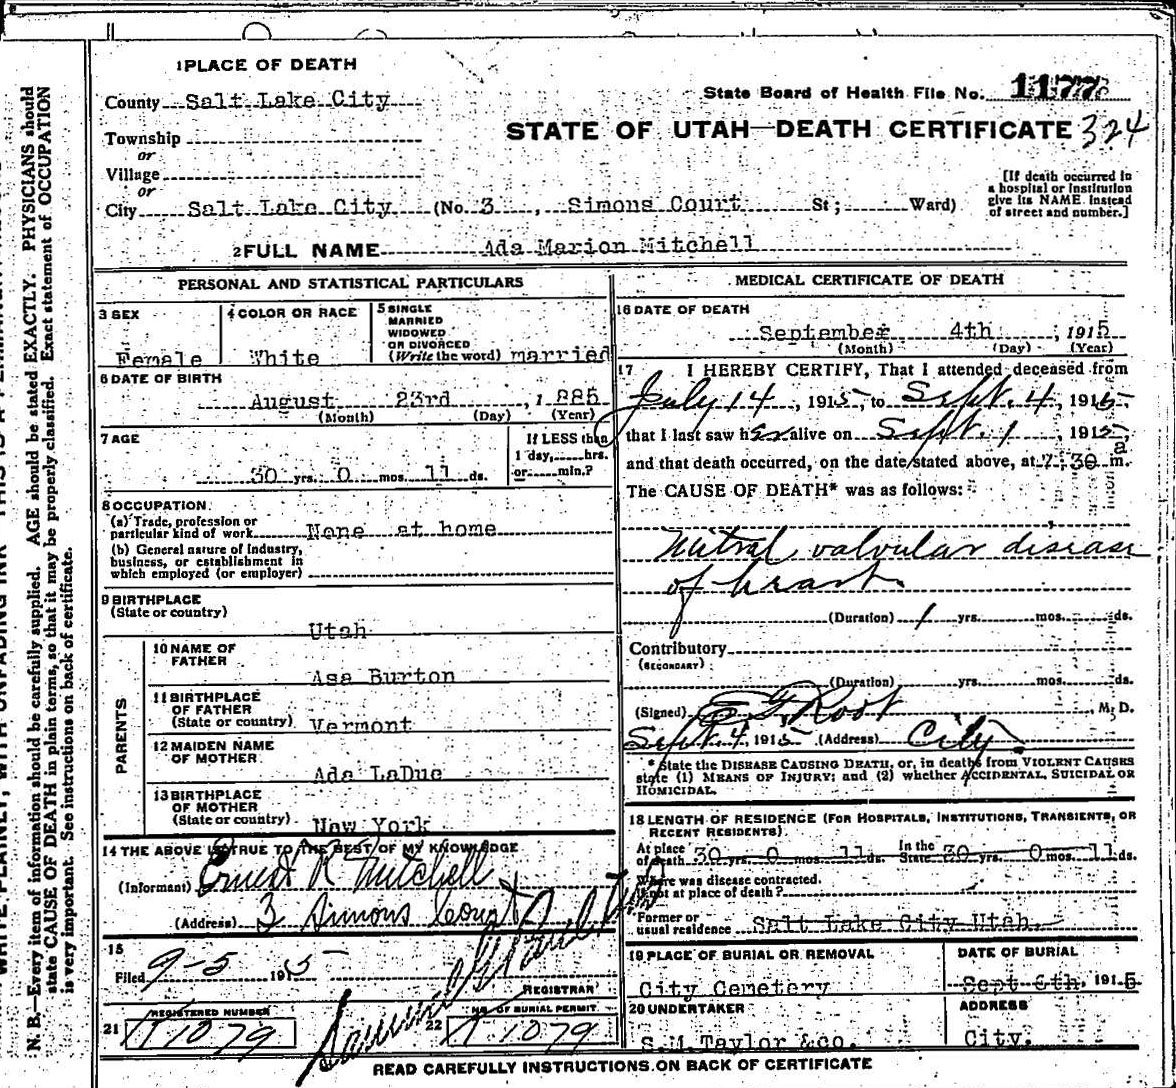 1 PLACE OF DEATH
County Salt Lake City
State Board of Health File No. 1177
Township
or
Village
or
City Salt Lake City (No. 3, Simons Court St; Ward)
STATE OF UTAH—DEATH CERTIFICATE 324
[If death occurred in
a hospital or institution
give its NAME instead
of street and number.]
2 FULL NAME Ada Marion Mitchell
PERSONAL AND STATISTICAL PARTICULARS
3 SEX
Female
4 COLOR OR RACE
White
5 SINGLE
MARRIED
WIDOWED
OR DIVORCED
(Write the word) married
6 DATE OF BIRTH
August 23rd, 1885
(Month) (Day) (Year)
7 AGE
30 yrs. 0 mos. 11 ds.
If LESS than
1 day, hrs.
or min.?
8 OCCUPATION
(a) Trade, profession or
particular kind of work None at home
(b) General nature of Industry,
business, or establishment in
which employed (or employer)
9 BIRTHPLACE
(State or country)
Utah
PARENTS
10 NAME OF
FATHER
Asa Burton
11 BIRTHPLACE
OF FATHER
(State or country) Vermont
12 MAIDEN NAME
OF MOTHER
Ada LaDuc
13 BIRTHPLACE
OF MOTHER
(State or country) New York
14 THE ABOVE IS TRUE TO THE BEST OF MY KNOWLEDGE
(Informant) Ernest R Mitchell
(Address) 3 Simons Court
15
Filed 9-5 1915
REGISTRAR
REGISTERED NUMBER
21 1079
NO. OF BURIAL PERMIT
22 1079
MEDICAL CERTIFICATE OF DEATH
16 DATE OF DEATH
September 4th, 1915
(Month) (Day) (Year)
17 I HEREBY CERTIFY, That I attended deceased from
July 14, 1915, to Sept. 4, 1915,
that I last saw her alive on Sept. 1, 1915,
and that death occurred, on the date stated above, at 7:30 a m.
The CAUSE OF DEATH* was as follows:
Mitral valvular disease
of heart.
(Duration) 1 yrs. mos. ds.
Contributory
(SECONDARY)
(Duration) yrs. mos. ds.
(Signed) E G Root, M. D.
Sept. 4, 1915 (Address) City.
* State the DISEASE CAUSING DEATH, or, in deaths from VIOLENT CAUSES
state (1) MEANS OF INJURY; and (2) whether ACCIDENTAL, SUICIDAL OR
HOMICIDAL.
18 LENGTH OF RESIDENCE (FOR HOSPITALS, INSTITUTIONS, TRANSIENTS, OR
RECENT RESIDENTS).
At place of death 30 yrs. 0 mos. 11 ds. In the State 30 yrs. 0 mos. 11 ds.
Where was disease contracted,
if not at place of death?
Former or
usual residence Salt Lake City Utah.
19 PLACE OF BURIAL OR REMOVAL
City Cemetery
DATE OF BURIAL
Sept 6th, 1915
20 UNDERTAKER
S.M. Taylor & co.
ADDRESS
City.
READ CAREFULLY INSTRUCTIONS ON BACK OF CERTIFICATE
N. B.—Every item of information should be carefully supplied. AGE should be stated EXACTLY. PHYSICIANS should
state CAUSE OF DEATH in plain terms, so that it may be properly classified. Exact statement of OCCUPATION
is very important. See instructions on back of certificate.